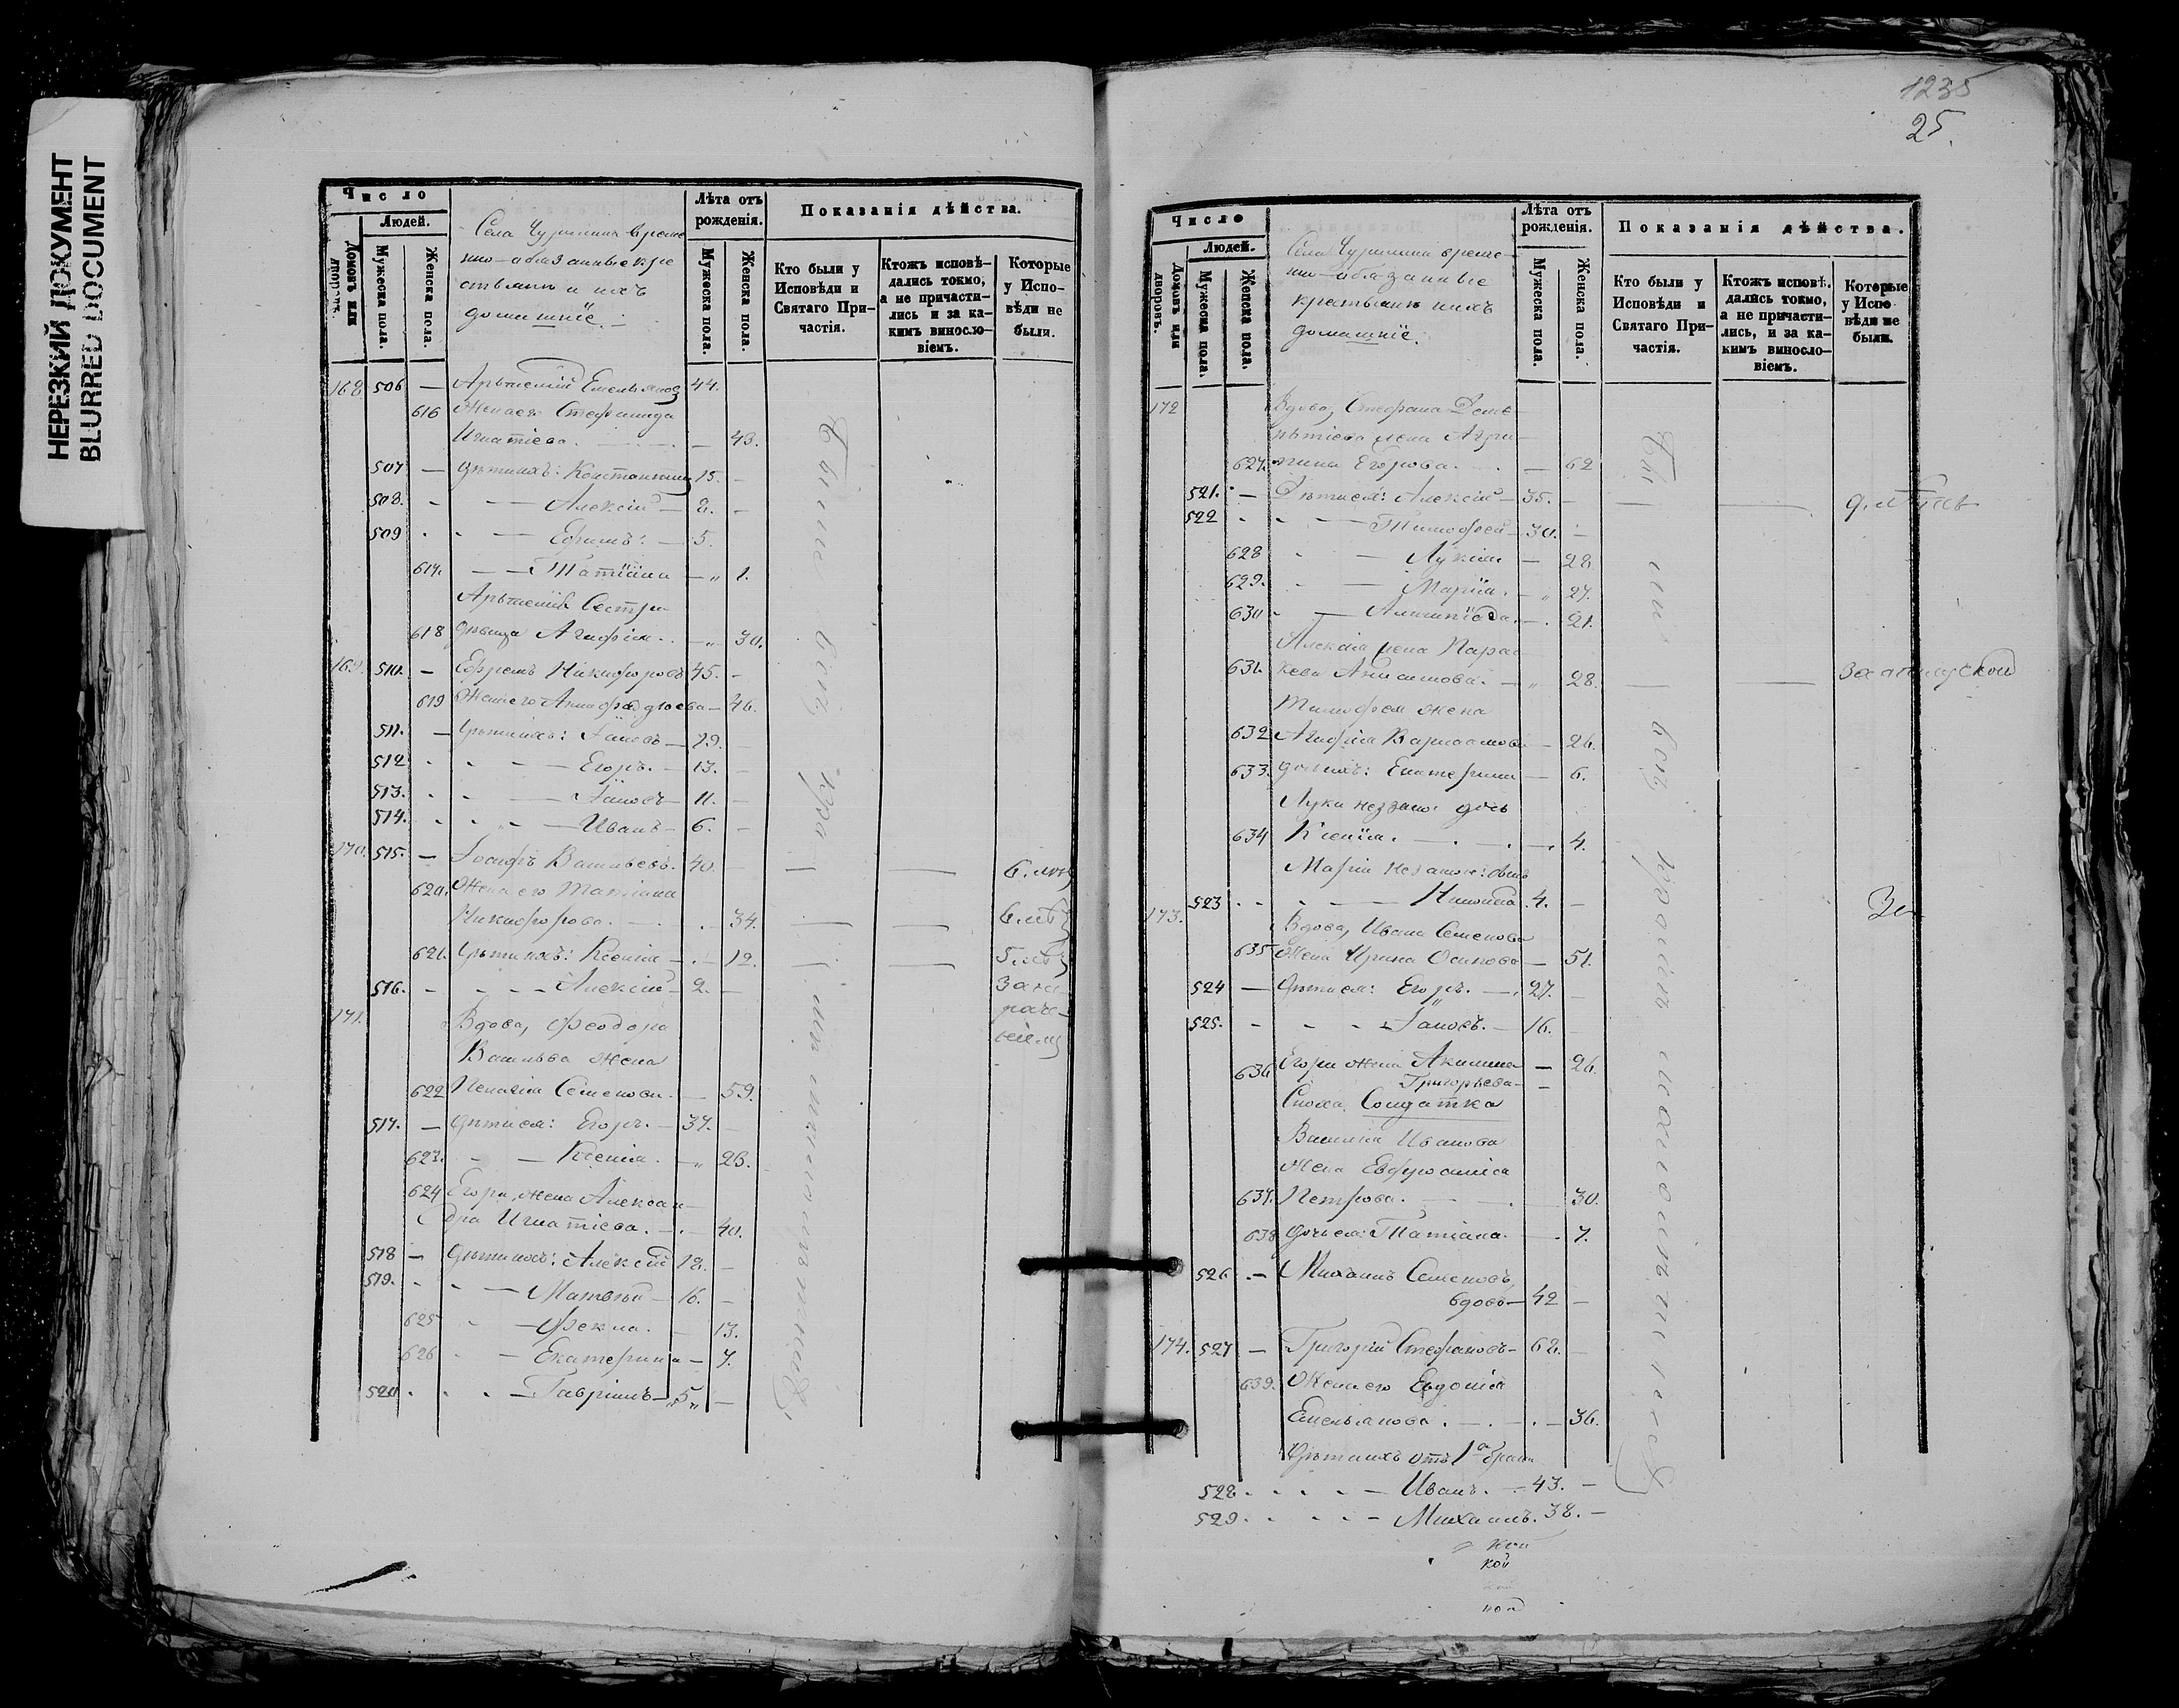 НЕРЕЗКИЙ ДОКУМЕНТ
BLURRED DOCUMENT
Число
Людей.
Домовъ или дворовъ.
Мужеска пола.
Женска пола.
Села Чуришина време
нно-обязанные кре
стьяне и ихъ
домашніе.
Лѣта отъ рожденія.
Мужеска пола.
Женска пола.
Показанія дѣйства.
Кто были у Исповѣди и Святаго Причастія.
Ктожъ исповѣ-
дались токмо,
а не причасти-
лись и за ка-
кимъ виносло-
віемъ.
Которые
у Испо-
вѣди не
были.
168 506 — Артемій Емельяновъ 44.
616 Жена его Стефанида
Игнатіева. — 43.
507 — дѣти ихъ: Константинъ 15. —
508. - — Алексій — 8. -
509 - - — Ефимъ. — 5.
617. — — Татіана — „ 1.
Артемія Сестра
618 дѣвица Агафія. — „ 30.
169. 510. — Ефремъ Никифоровъ 45. -
619 Жена его Анна — 46.
511. — дѣти ихъ: Іаковъ — 19. —
512 - - — Егоръ. — 13. —
513. - - — Іаковъ — 11. —
514. - - — Иванъ — 6. —
170. 515. — Іосифъ Васильевъ. 40. —
620. Жена его Татіана
Никифорова. — 34.
621. дѣти ихъ: Ксенія — 12.
516. - - — Алексій — 2. —
171. Вдова, Феодора
Васильева жена
622 Пелагія Семенова. — 59.
517. — дѣти ея: Егоръ. — 37. —
623. - — Ксенія. — „ 23.
624 Егора жена Алексан-
дра Игнатіева. — 40.
518 — дѣти ихъ: Алексій 18. —
519. - - — Матвѣй — 16. —
625 - — Фекла. — 13.
626 - — Екатерина — 7.
520. - - — Гавріилъ — 5 „ —
Были всѣ кромѣ
6. лѣтъ
6. лѣтъ
5. лѣтъ
1235
25.
Число
Людей.
Домовъ или дворовъ.
Мужеска пола.
Женска пола.
Села Чуришина време-
нно-обязанные
крестьяне и ихъ
домашніе.
Лѣта отъ рожденія.
Мужеска пола.
Женска пола.
Показанія дѣйства.
Кто были у Исповѣди и Святаго Причастія.
Ктожъ исповѣ-
дались токмо,
а не причасти-
лись, и за ка-
кимъ виносло-
віемъ.
Которые
у Испо
вѣди не
были.
172 Вдова, Стефана
жена Агри-
627. пина Егорова. — 62
521. — Дѣти ея: Алексій — 35. —
522 - - — Тимофей — 30. —
628 - — Лукія — 28
629. - — Марія. — „ 27.
630 - — 21.
Алексія жена Парас
631. кева Анисимова. — „ 28.
Тимофея жена
632 Агафія Варлаамова — 26.
633. дочь ихъ: Екатерина — 6.
Лукіи незакон: дочь
634 Ксенія. — 4.
Маріи незакон: сынъ
523 - - — 4. —
173. Вдова, Ивана Семенова
635 жена Ирина Осипова — 51.
524 — дѣти ея: Егоръ. — 27. —
525. - - — Іаковъ. — 16. —
636 Егора жена Акилина — 26.
Григорьева —
Сноха Солдатка
Василія Иванова
жена Евфросинія
637. Петрова. — 30.
638 дочь ея: Татіана. — 7.
526 — Михаилъ Семеновъ,
вдовъ — 42 —
174. 527 — Григорій Стефановъ — 62. —
639. Жена его Евдокія
Емельянова. — 36.
Дѣти ихъ отъ 1го брака
528. - - — Иванъ. — 43. —
529. - - — Михаилъ. 38. —
кой
Были всѣ кромѣ